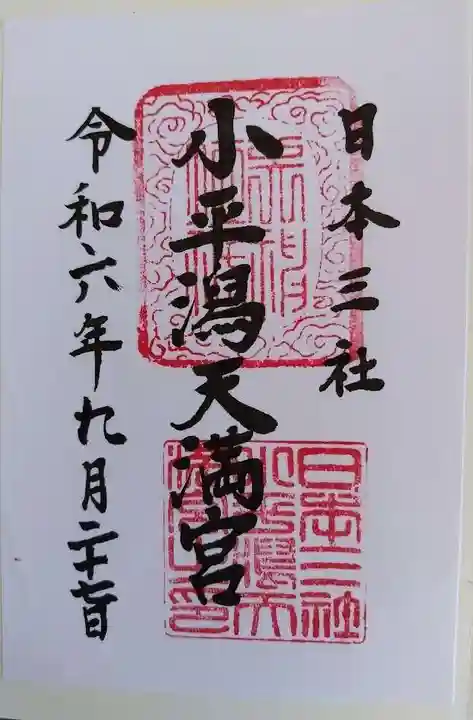 日本三社
小平潟天満宮
令和六年九月二十日
日本三社
小平潟天
満宮之印